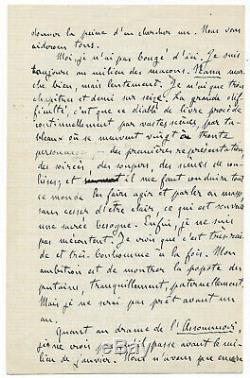 donner la peine d'en chercher un. Nous vous
aiderons tous.
Moi, je n'ai pas bougé d'ici. Je suis
toujours au milieu des maçons. Nana mar
che bien, mais lentement. Je n'ai que trois
chapitres et demi sur seize. La grande dif
ficulté, c'est que ce diable de livre procède
continuellement par vastes scènes, par ta-
bleaux où se meuvent vingt à trente
personnages – des premières représentations,
des soirées, des soupers, des scènes de cou-
lisses; et il me faut conduire tout
ce monde, en faire agir et parler en masse
sans cesser d'être clair, ce qui est souvent
une sacrée besogne. Enfin, je ne suis
pas mécontent. Je crois que c'est très-rai
de et très-bonhomme à la fois. Mon
ambition est de montrer la popote des
putains, tranquillement, paternellement.
Mais je ne serai pas prêt avant un
an.
Quant au drame de l'Assommoir,
je ne crois passe avant le mi-
lieu de janvier. Nous n'avons pas encore